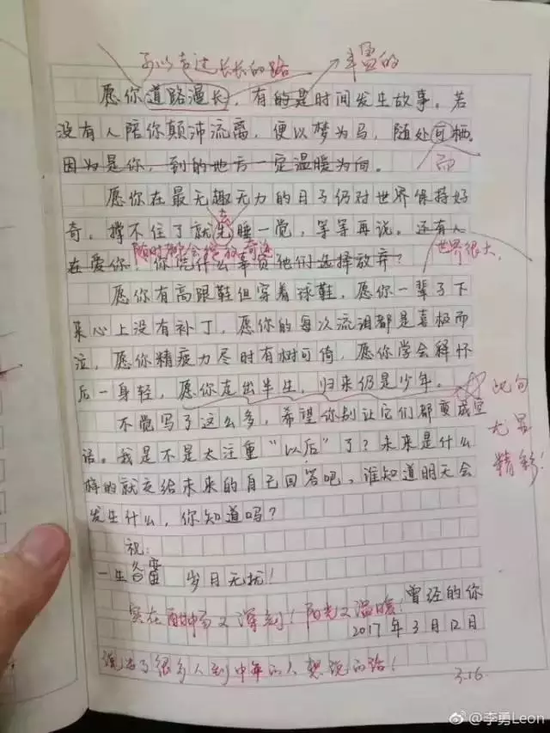 可以走过长长的路 丰富的
愿你道路漫长，有的是时间发生故事。若
没有人陪你颠沛流离，便以梦为马，随处可栖。
因为是你，到的地方一定温暖为向。 而
愿你在最无趣无力的日子仍对世界保持好
奇，撑不住了就先睡一觉，等等再说。还有人
随时都会 世界很大，
在爱你，你凭什么辜负他们选择放弃？
愿你有高跟鞋但穿着球鞋，愿你一辈子下
来心上没有补丁，愿你的每次流泪都是喜极而
泣，愿你精疲力尽时有树可倚，愿你学会释怀
后一身轻，愿你走出半生，归来仍是少年。 此句
不觉写了这么多，希望你别让它们都变成空 尤显
话。我是不是太注重“以后”了？未来是什么 精彩！
样的就交给未来的自己回答吧，谁知道明天会
发生什么，你知道吗？
祝：
一生 岁月无忧！
实在 又深刻！阳光又温暖！ 曾经的你
2017年3月12日
说出了很多人到中年的人想说的话！ 3.16
@李勇Leon